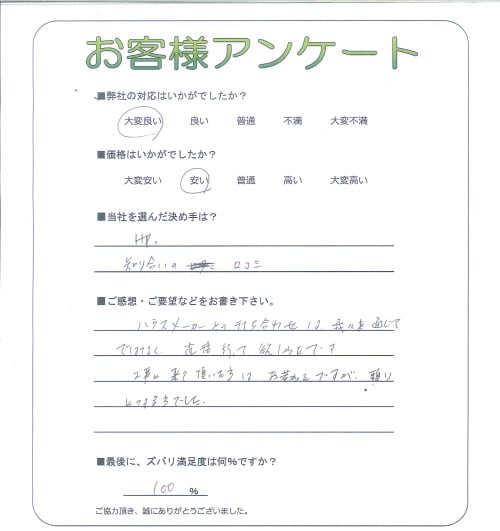 お客様アンケート
■弊社の対応はいかがでしたか?
大変良い 良い 普通 不満 大変不満
■価格はいかがでしたか?
大変安い 安い 普通 高い 大変高い
■当社を選んだ決め手は?
HP。
知り合いの 口コミ
■ご感想・ご要望などをお書き下さい。
ハウスメーカーとの打ち合わせは、我々を通じて
ではなく、直接行って欲しかったです
工事に来て頂いた方は お若いですが、頼り
になる方でした。
■最後に、ズバリ満足度は何%ですか?
100 %
ご協力頂き、誠にありがとうございました。